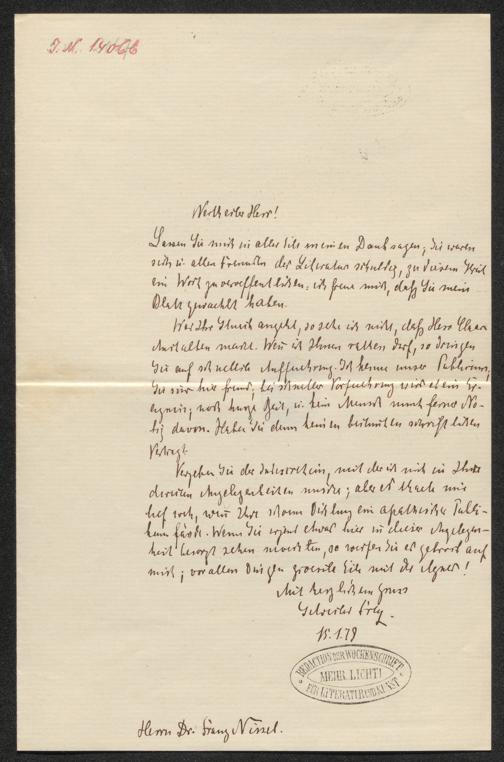 J.N. 14066
Werthester Herr!
Lassen Sie mich in aller Eile meinen Dank sagen; Sie waren
sich u. allen Freunden der Literatur schuldig, zu diesem
ein Wort zu veröffentlichen; ich freue mich, daß Sie mein
Blatt gewählt haben.
Was Ihr Stück angeht, so sehe ich nicht, daß Herr
Anstalten macht. Wenn ich Ihnen rathen darf, so dringen
Sie auf schnellste Aufführung. Ich kenne unser Publicum,
bei schneller Vorführung wird es ein Er-
eigniß; noch kurze Zeit, u. kein Mensch nimmt ferner No-
tiz davon. Haben Sie denn keinen bestimmten schriftlichen
Vertrag?
Vergeben Sie die Indiscretion, mit der ich mich in Ihre
Angelegenheiten mische; aber es thäte mir
leid, wenn Ihre schöne Dichtung ein apathisches Publi-
kum fände. Wenn Sie irgend etwas hier in dieser Angelegen-
heit besorgt sehen möchten, so werfen Sie es getrost auf
mich; vor allen Dingen Eile mit der Agnes!
Mit herzlichem Gruss
15.1.79
REDACTION DER WOCHENSCHRIFT
MEHR LICHT!
FÜR LITERATUR UND KUNST
Herrn Dr. Franz Nissel.